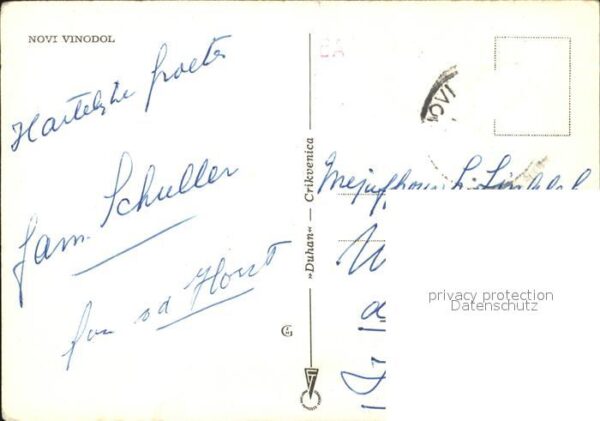 NOVI VINODOL
Hartelijke groeten
fam. Schuller
fam v d Horst
»Duhan« — Crikvenica
NOVI
Mejufhouw L.
privacy protection
Datenschutz